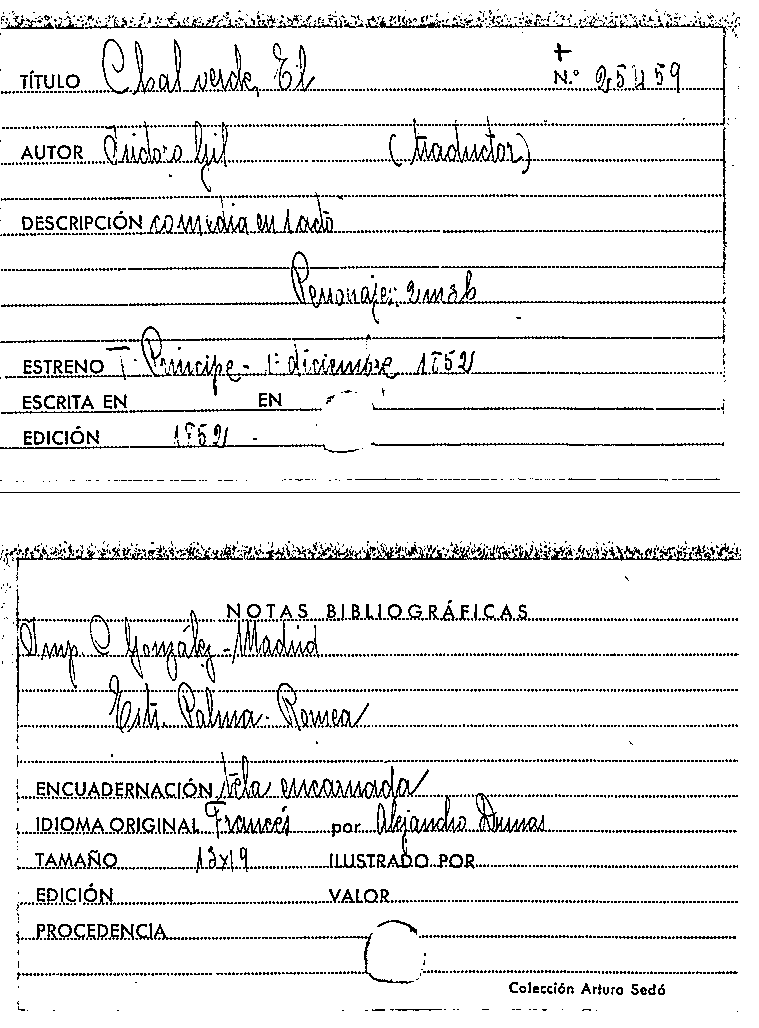 +
TÍTULO Chal verde, El N.º 25459
AUTOR Isidoro Gil (traductor)
DESCRIPCIÓN comedia en 1 acto
Personajes: 2 m 3 h
ESTRENO T. Príncipe - 1º diciembre 1852
ESCRITA EN EN
EDICIÓN 1852 -
NOTAS BIBLIOGRÁFICAS
Imp. C González - Madrid
Estr. Palma - Romea
ENCUADERNACIÓN tela encarnada
IDIOMA ORIGINAL Francés por Alejandro Dumas
TAMAÑO 13x19 ILUSTRADO POR
EDICIÓN VALOR
PROCEDENCIA
Colección Arturo Sedó